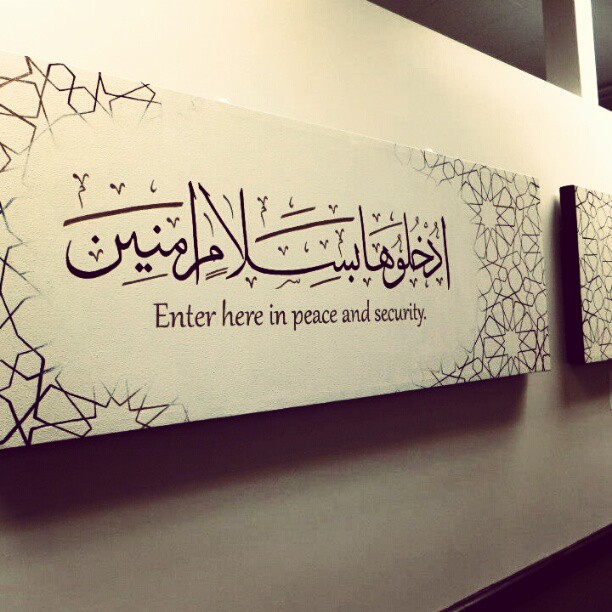 ادْخُلُوهَا بِسَلَامٍ اٰمِنِينَ
Enter here in peace and security.